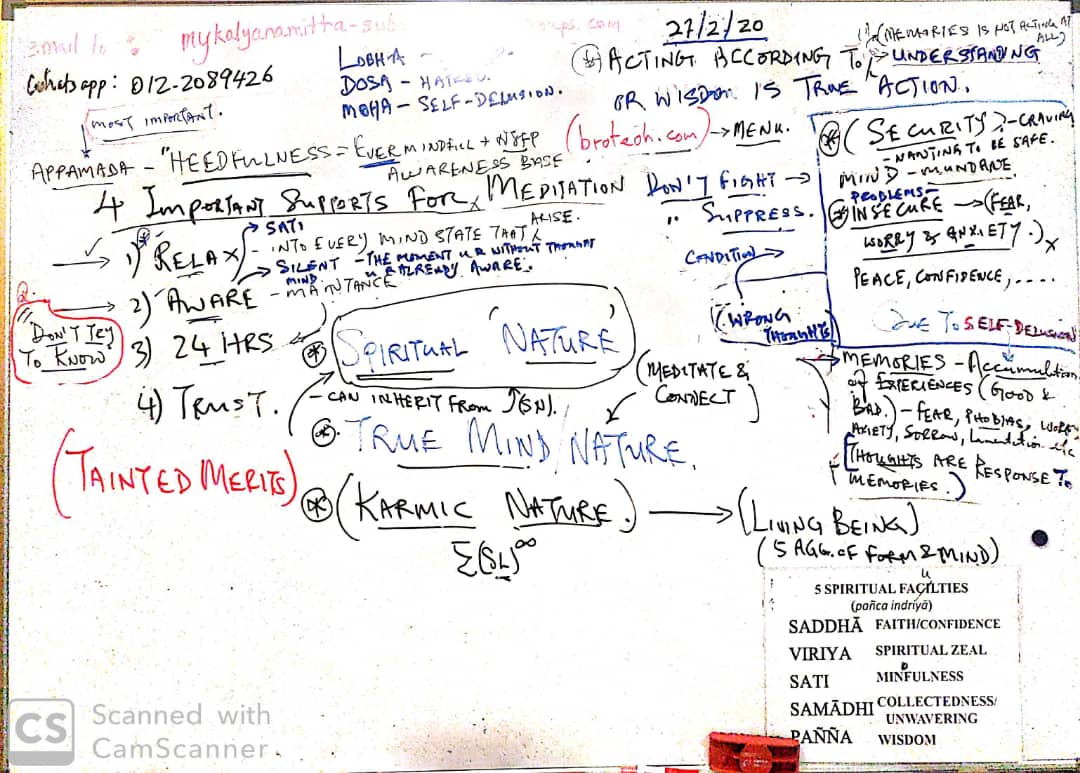 Email to : mykalyanamitta-sub
oups.com
27/2/20
Whatsapp: 012-2089426
LOBHA -
DOSA - HATRED.
MOHA - SELF-DELUSION.
(MEMORIES IS NOT ACTING AT ALL)
* ACTING ACCORDING TO → UNDERSTANDING
OR WISDOM IS TRUE ACTION.
MOST IMPORTANT.
(broteoh.com) → MENU.
APPAMADA - "HEEDFULNESS = EVER MINDFUL +
AWARENESS BASE.
4 IMPORTANT SUPPORTS FOR MEDITATION
→ SATI
ARISE.
→ 1) RELAX - INTO EVERY MIND STATE THAT
→ SILENT MIND - THE MOMENT U R WITHOUT THOUGHT
U R ALREADY AWARE.
→ 2) AWARE - MAINTANCE
2.
"DON'T TRY
TO KNOW"
3) 24 HRS
4) TRUST.
* SPIRITUAL 'NATURE'
- CAN INHERIT FROM (SN).
[MEDITATE &
CONNECT]
* TRUE MIND/NATURE.
(TAINTED MERITS)
* (KARMIC NATURE.) → (LIVING BEING)
(5 AGG. OF FORM & MIND)
Σ(SL)∞
DON'T FIGHT →
" SUPPRESS.
CONDITION
(WRONG
THOUGHTS)
* (SECURITY) - CRAVING
- WANTING TO BE SAFE.
MIND - MUNDANE
PROBLEMS -
* INSECURE → (FEAR,
WORRY & ANXIETY.)
PEACE, CONFIDENCE, ....
DUE TO SELF-DELUSION
→ MEMORIES - Accumulation
of EXPERIENCES (GOOD &
BAD.) - FEAR, PHOBIAS, WORRY
ANXIETY, SORROW, Lamentation etc
[THOUGHTS ARE RESPONSE TO
MEMORIES.)
u
5 SPIRITUAL FACILTIES
(pañca indriyā)
SADDHĀ FAITH/CONFIDENCE
VIRIYA SPIRITUAL ZEAL
D
SATI MINFULNESS
SAMĀDHI COLLECTEDNESS/
UNWAVERING
PAÑÑA WISDOM
CS Scanned with
CamScanner